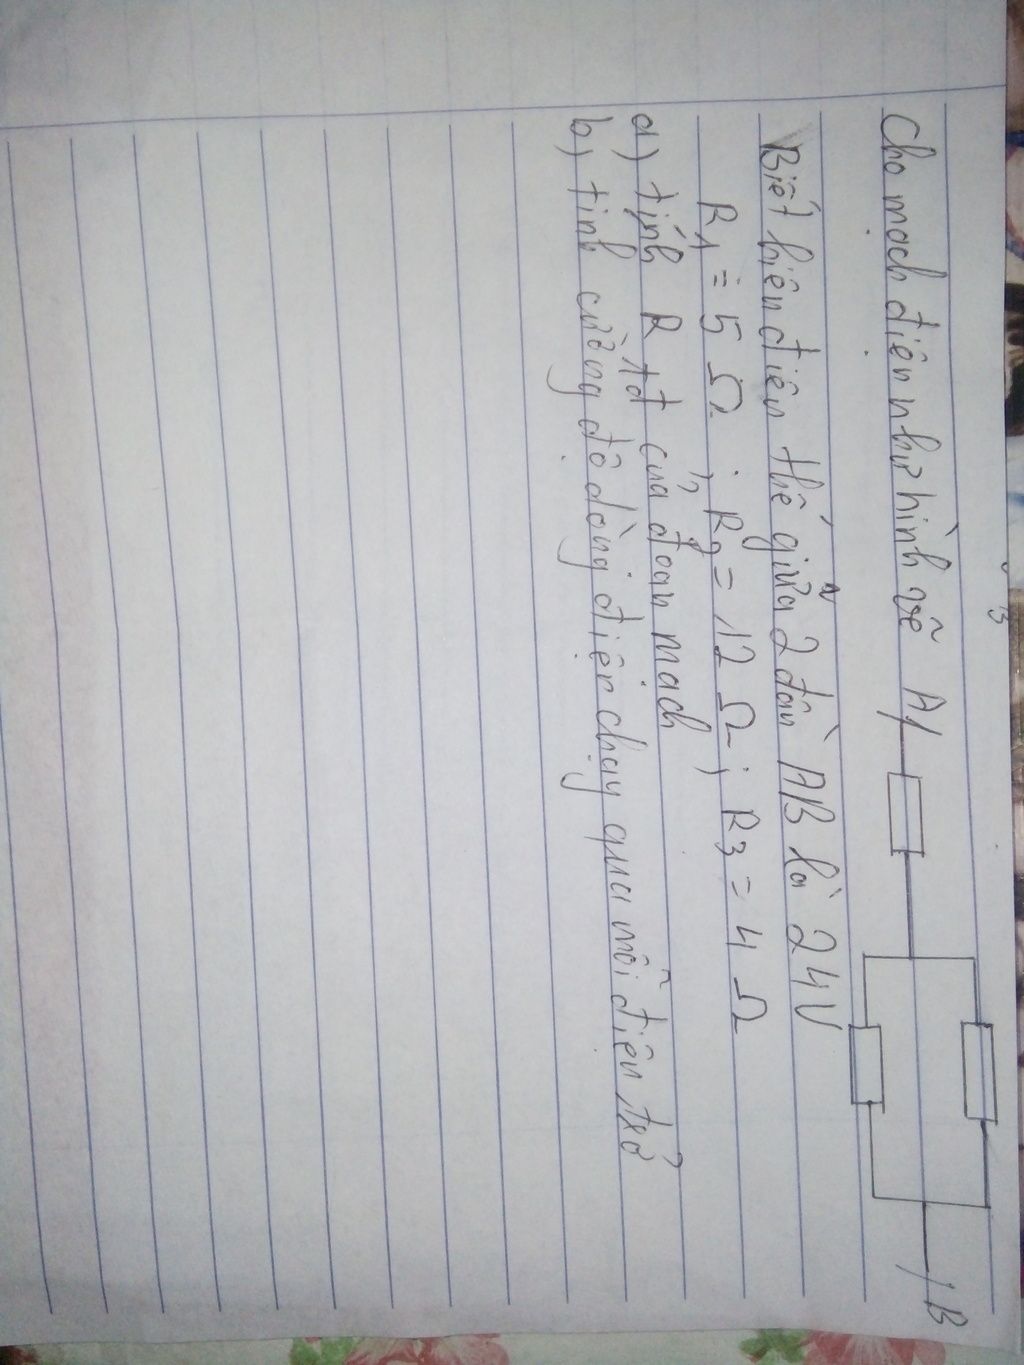 Cho mạch điện như hình vẽ A B
Biết hiện điện thế giữa 2 đầu AB là 24V
R1 = 5 Ω ; R2 = 12 Ω ; R3 = 4 Ω
a) tính R tđ của đoạn mạch
b) tinh cường độ dòng điện chạy qua mỗi điện trở